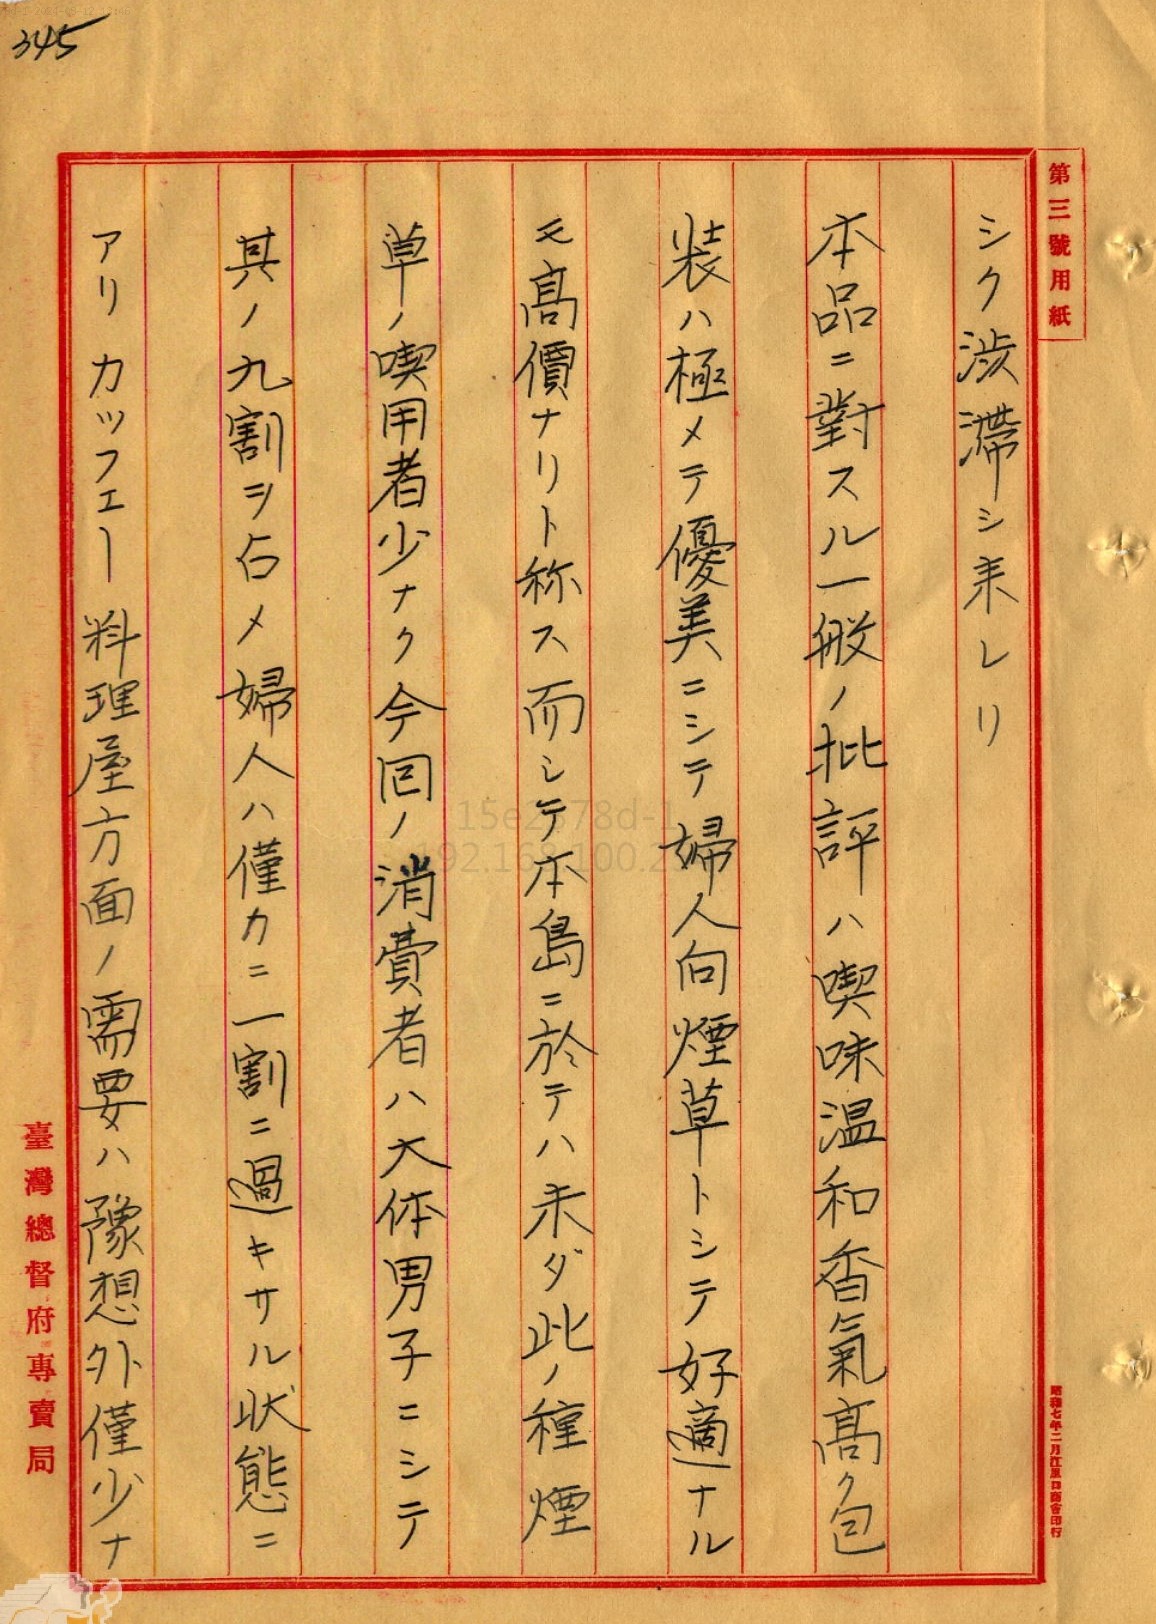 345
第三號用紙
シク渋滞シ来レリ
本品ニ對スル一般ノ批評ハ喫味温和香氣高ク包
装ハ極メテ優美ニシテ婦人向煙草トシテ好適ナル
モ高價ナリト称ス而シテ本島ニ於テハ未ダ此ノ種煙
草ノ喫用者少ナク今回ノ消費者ハ大体男子ニシテ
其ノ九割ヲ占メ婦人ハ僅カニ一割ニ過キサル状態ニ
アリカッフェー料理屋方面ノ需要ハ豫想外僅少ナ
臺灣總督府專賣局
昭和七年二月江里口商會印行
15e2378d-1
192.168.100.2